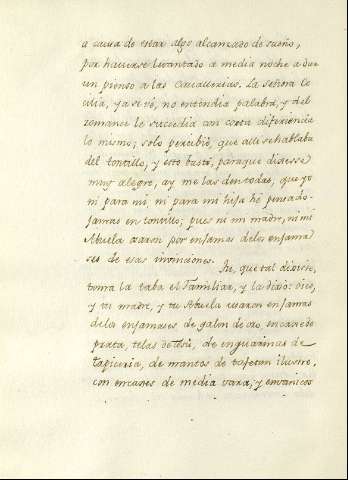 a causa de estar algo alcanzado de sueño,
por haverse levantado a media noche a dar
un pienso a las Cavallerias. La señora Ce
cilia, ya se vé, no entendia palabra, y del
romance le succedia con corta diferiencia
lo mismo; solo percibió, que alli se hablaba
del tontillo, y esto bastó, para que dixesse
muy alegre, ay me las den todas, que yo
ni para mi, ni para mi hija hé pensado
jamas en tontillo; pues ni mi madre, ni mi
Abuela usaron por enjamas de los enjama
ses de esas invenciones.
que tal dixiste,
toma la taba el Familiar, y la dixo:
y tu madre, y tu Abuela usaron enjamas
de los enjamases de galon de oro, encaxe de
prata, telas de tisú, de enguarinas de
tapiceria, de mantos de tafetan ilustre,
con encaxes de media vara, y envanicos